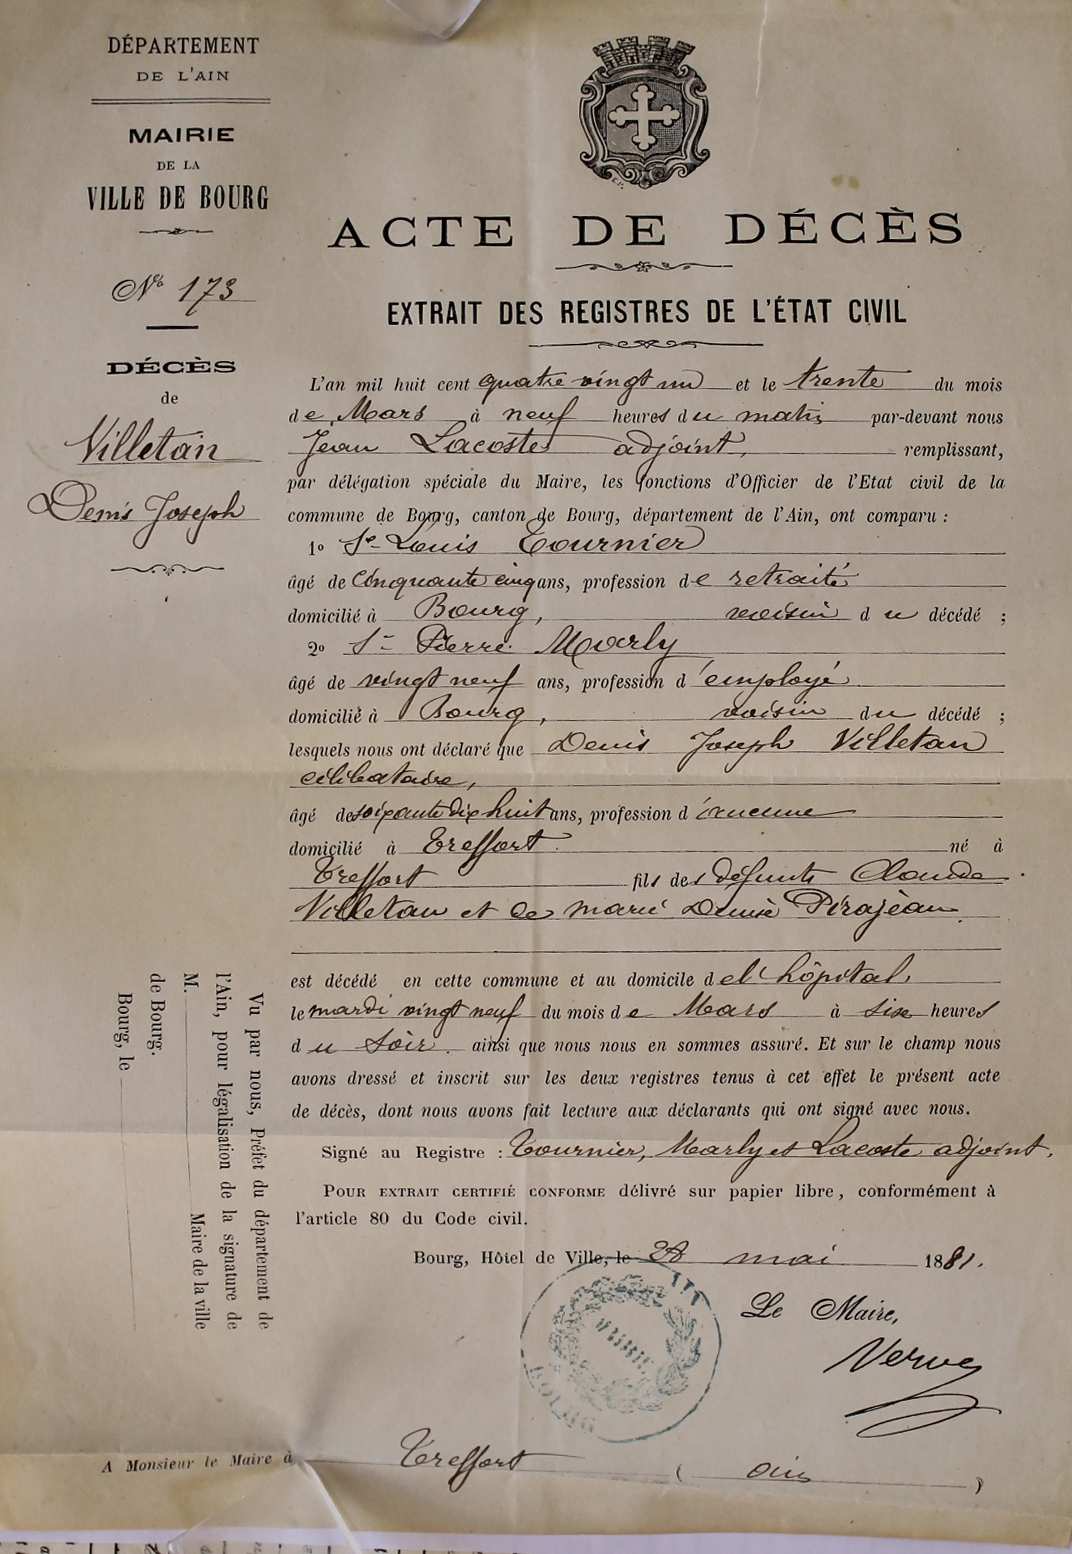 DÉPARTEMENT
DE L'AIN
MAIRIE
DE LA
VILLE DE BOURG
No 173
DÉCÈS
de
Villetan
Denis Joseph
ACTE DE DÉCÈS
EXTRAIT DES REGISTRES DE L'ÉTAT CIVIL
L'an mil huit cent quatre vingt un et le trente du mois
de Mars à neuf heures du matin par-devant nous
Jean Lacoste adjoint, remplissant,
par délégation spéciale du Maire, les fonctions d'Officier de l'Etat civil de la
commune de Bourg, canton de Bourg, département de l'Ain, ont comparu :
1o Sr Louis Tournier
âgé de Cinquante cinq ans, profession de retraité
domicilié à Bourg, voisin du décédé ;
2o Sr Pierre Marly
âgé de vingt neuf ans, profession d'employé
domicilié à Bourg, voisin du décédé ;
lesquels nous ont déclaré que Denis Joseph Villetan
célibataire,
âgé de soixante dix huit ans, profession d aucune
domicilié à Treffort né à
Treffort fils des défunts Claude
Villetan et de marie Denise Pirajean
est décédé en cette commune et au domicile de l'hôpital,
le mardi vingt neuf du mois de Mars à six heures
du Soir ainsi que nous nous en sommes assuré. Et sur le champ nous
avons dressé et inscrit sur les deux registres tenus à cet effet le présent acte
de décès, dont nous avons fait lecture aux déclarants qui ont signé avec nous.
Signé au Registre : Tournier, Marly et Lacoste adjoint.
POUR EXTRAIT CERTIFIÉ CONFORME délivré sur papier libre, conformément à
l'article 80 du Code civil.
Bourg, Hôtel de Ville, le 28 mai 1881.
Le Maire,
BOURG
A Monsieur le Maire à Treffort (ain)
Vu par nous, Préfet du département de
l'Ain, pour légalisation de la signature de
M. Maire de la ville
de Bourg.
Bourg, le